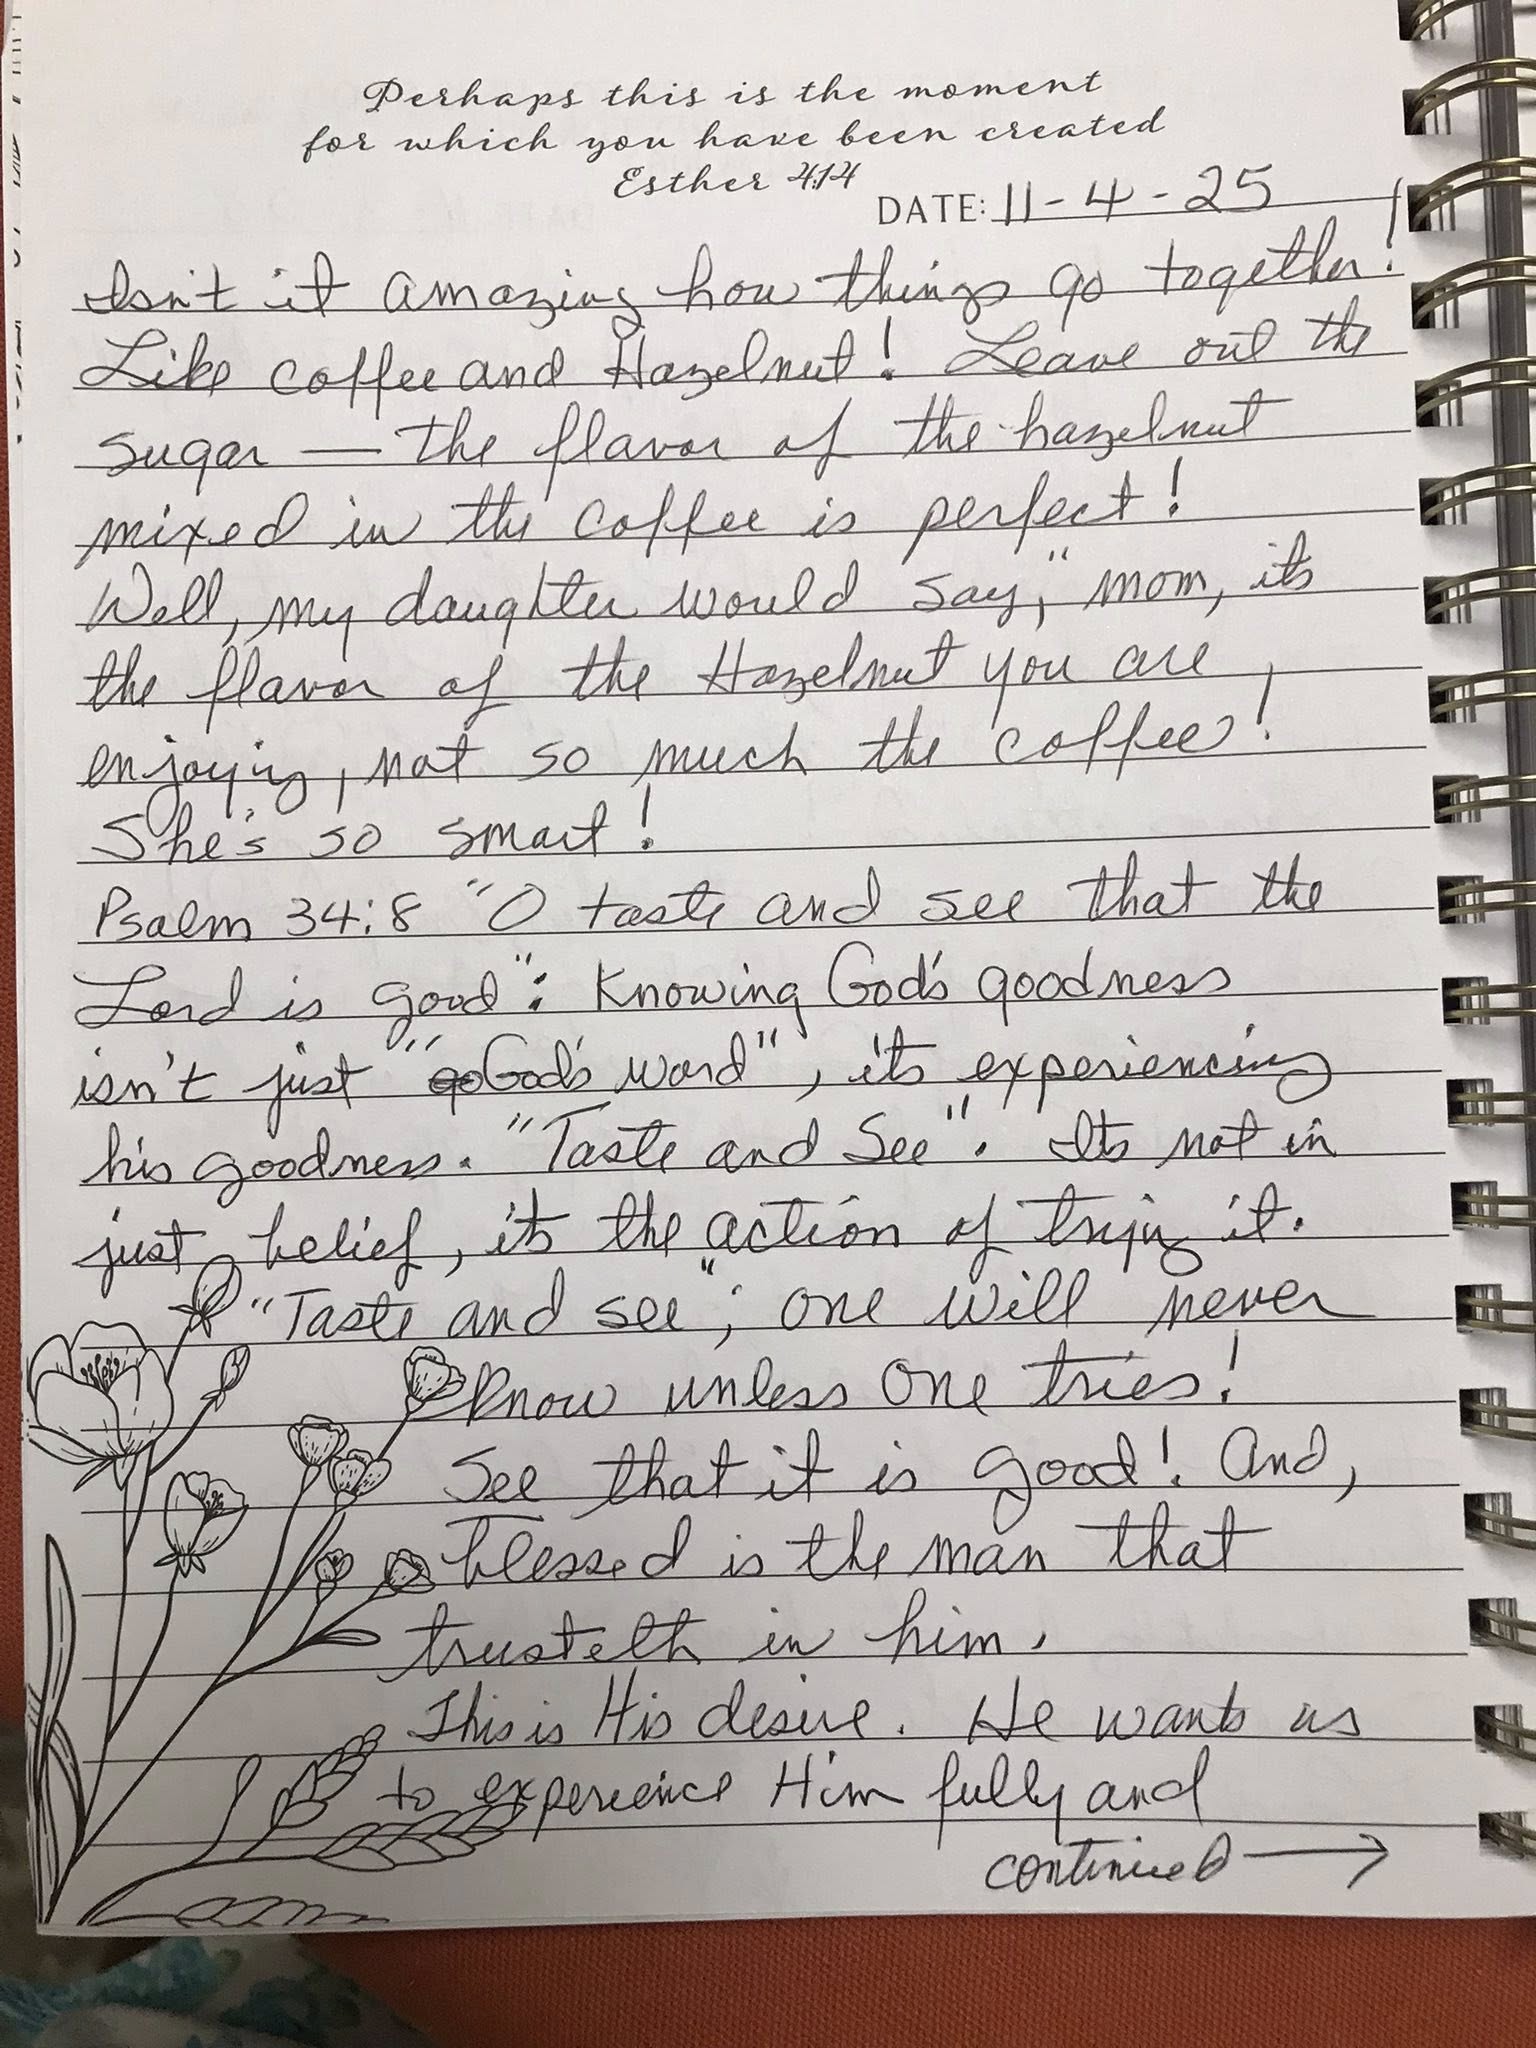 Perhaps this is the moment
for which you have been created
Esther 4:14
DATE: 11-4-25
Isn't it amazing how things go together!
Like coffee and Hazelnut! Leave out the
sugar — the flavor of the hazelnut
mixed in the coffee is perfect!
Well, my daughter would say, "mom, its
the flavor of the Hazelnut you are
enjoying, not so much the coffee!
She's so smart!
Psalm 34:8 "O taste and see that the
Lord is good": Knowing God's goodness
isn't just "God's word", its experiencing
his goodness. "Taste and See". Its not in
just belief, its the action of trying it.
"Taste and see"; one will never
know unless one tries!
See that it is good! And,
blessed is the man that
trusteth in him.
This is His desire. He wants us
to experience Him fully and
continued →